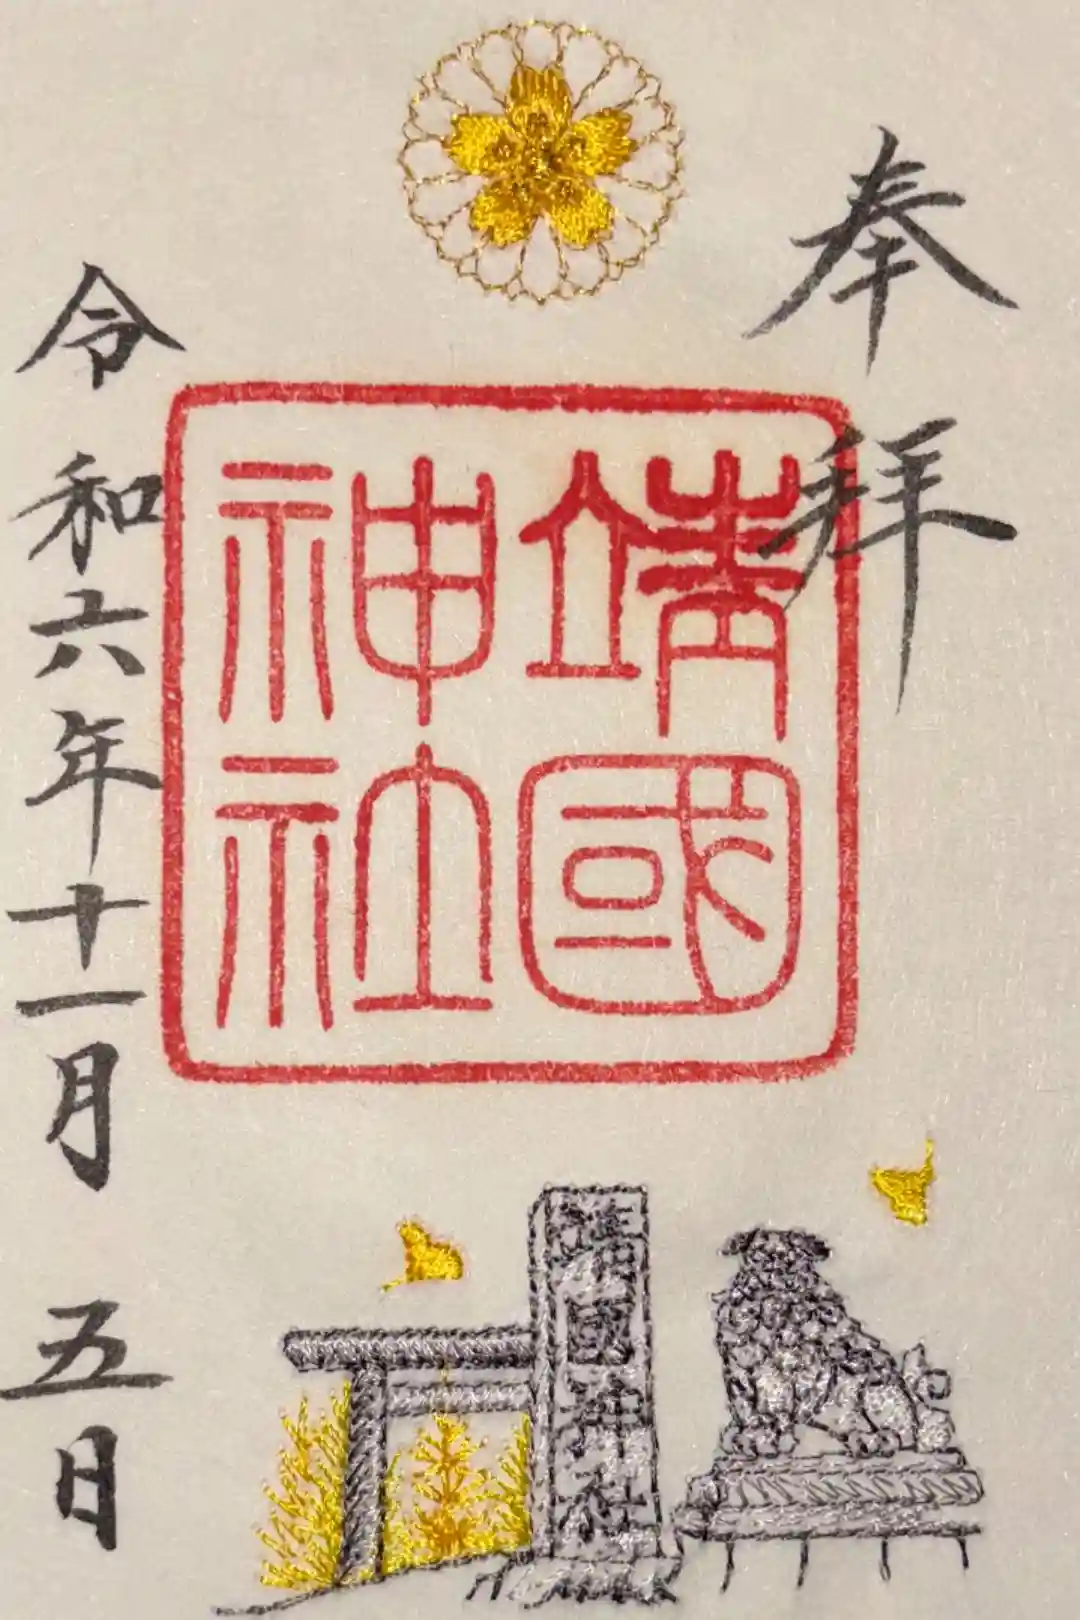 奉拝
靖國
神社
靖國神社
令和六年十一月五日